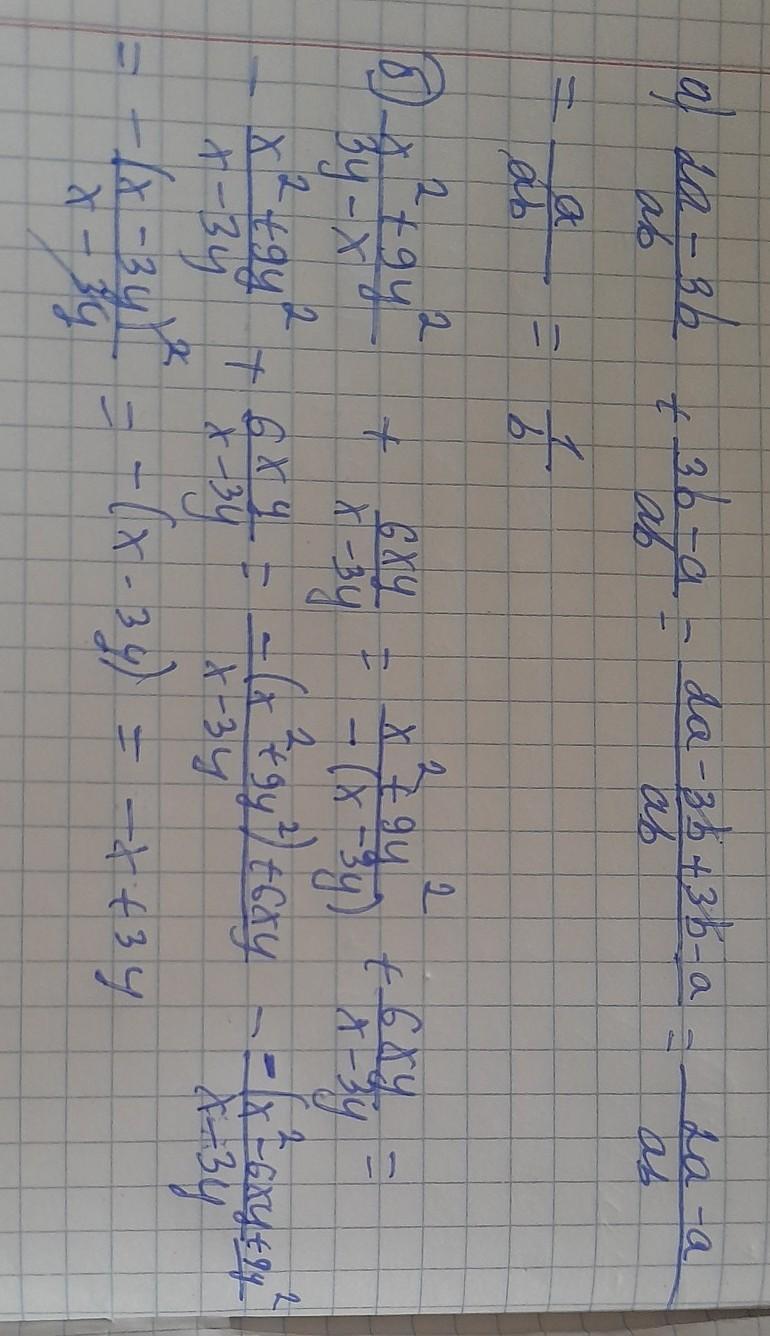 а) (2a - 3b)/(ab) + (3b - a)/(ab) = (2a - 3b + 3b - a)/(ab) = (2a - a)/(ab)
= a/(ab) = 1/b
б) (x² + 9y²)/(3y - x) + (6xy)/(x - 3y) = (x² + 9y²)/(-(x - 3y)) + (6xy)/(x - 3y) =
- (x² + 9y²)/(x - 3y) + (6xy)/(x - 3y) = (-(x² + 9y²) + 6xy)/(x - 3y) = (-(x² - 6xy + 9y²)/(x - 3y)
= (-(x - 3y)²)/(x - 3y) = -(x - 3y) = -x + 3y